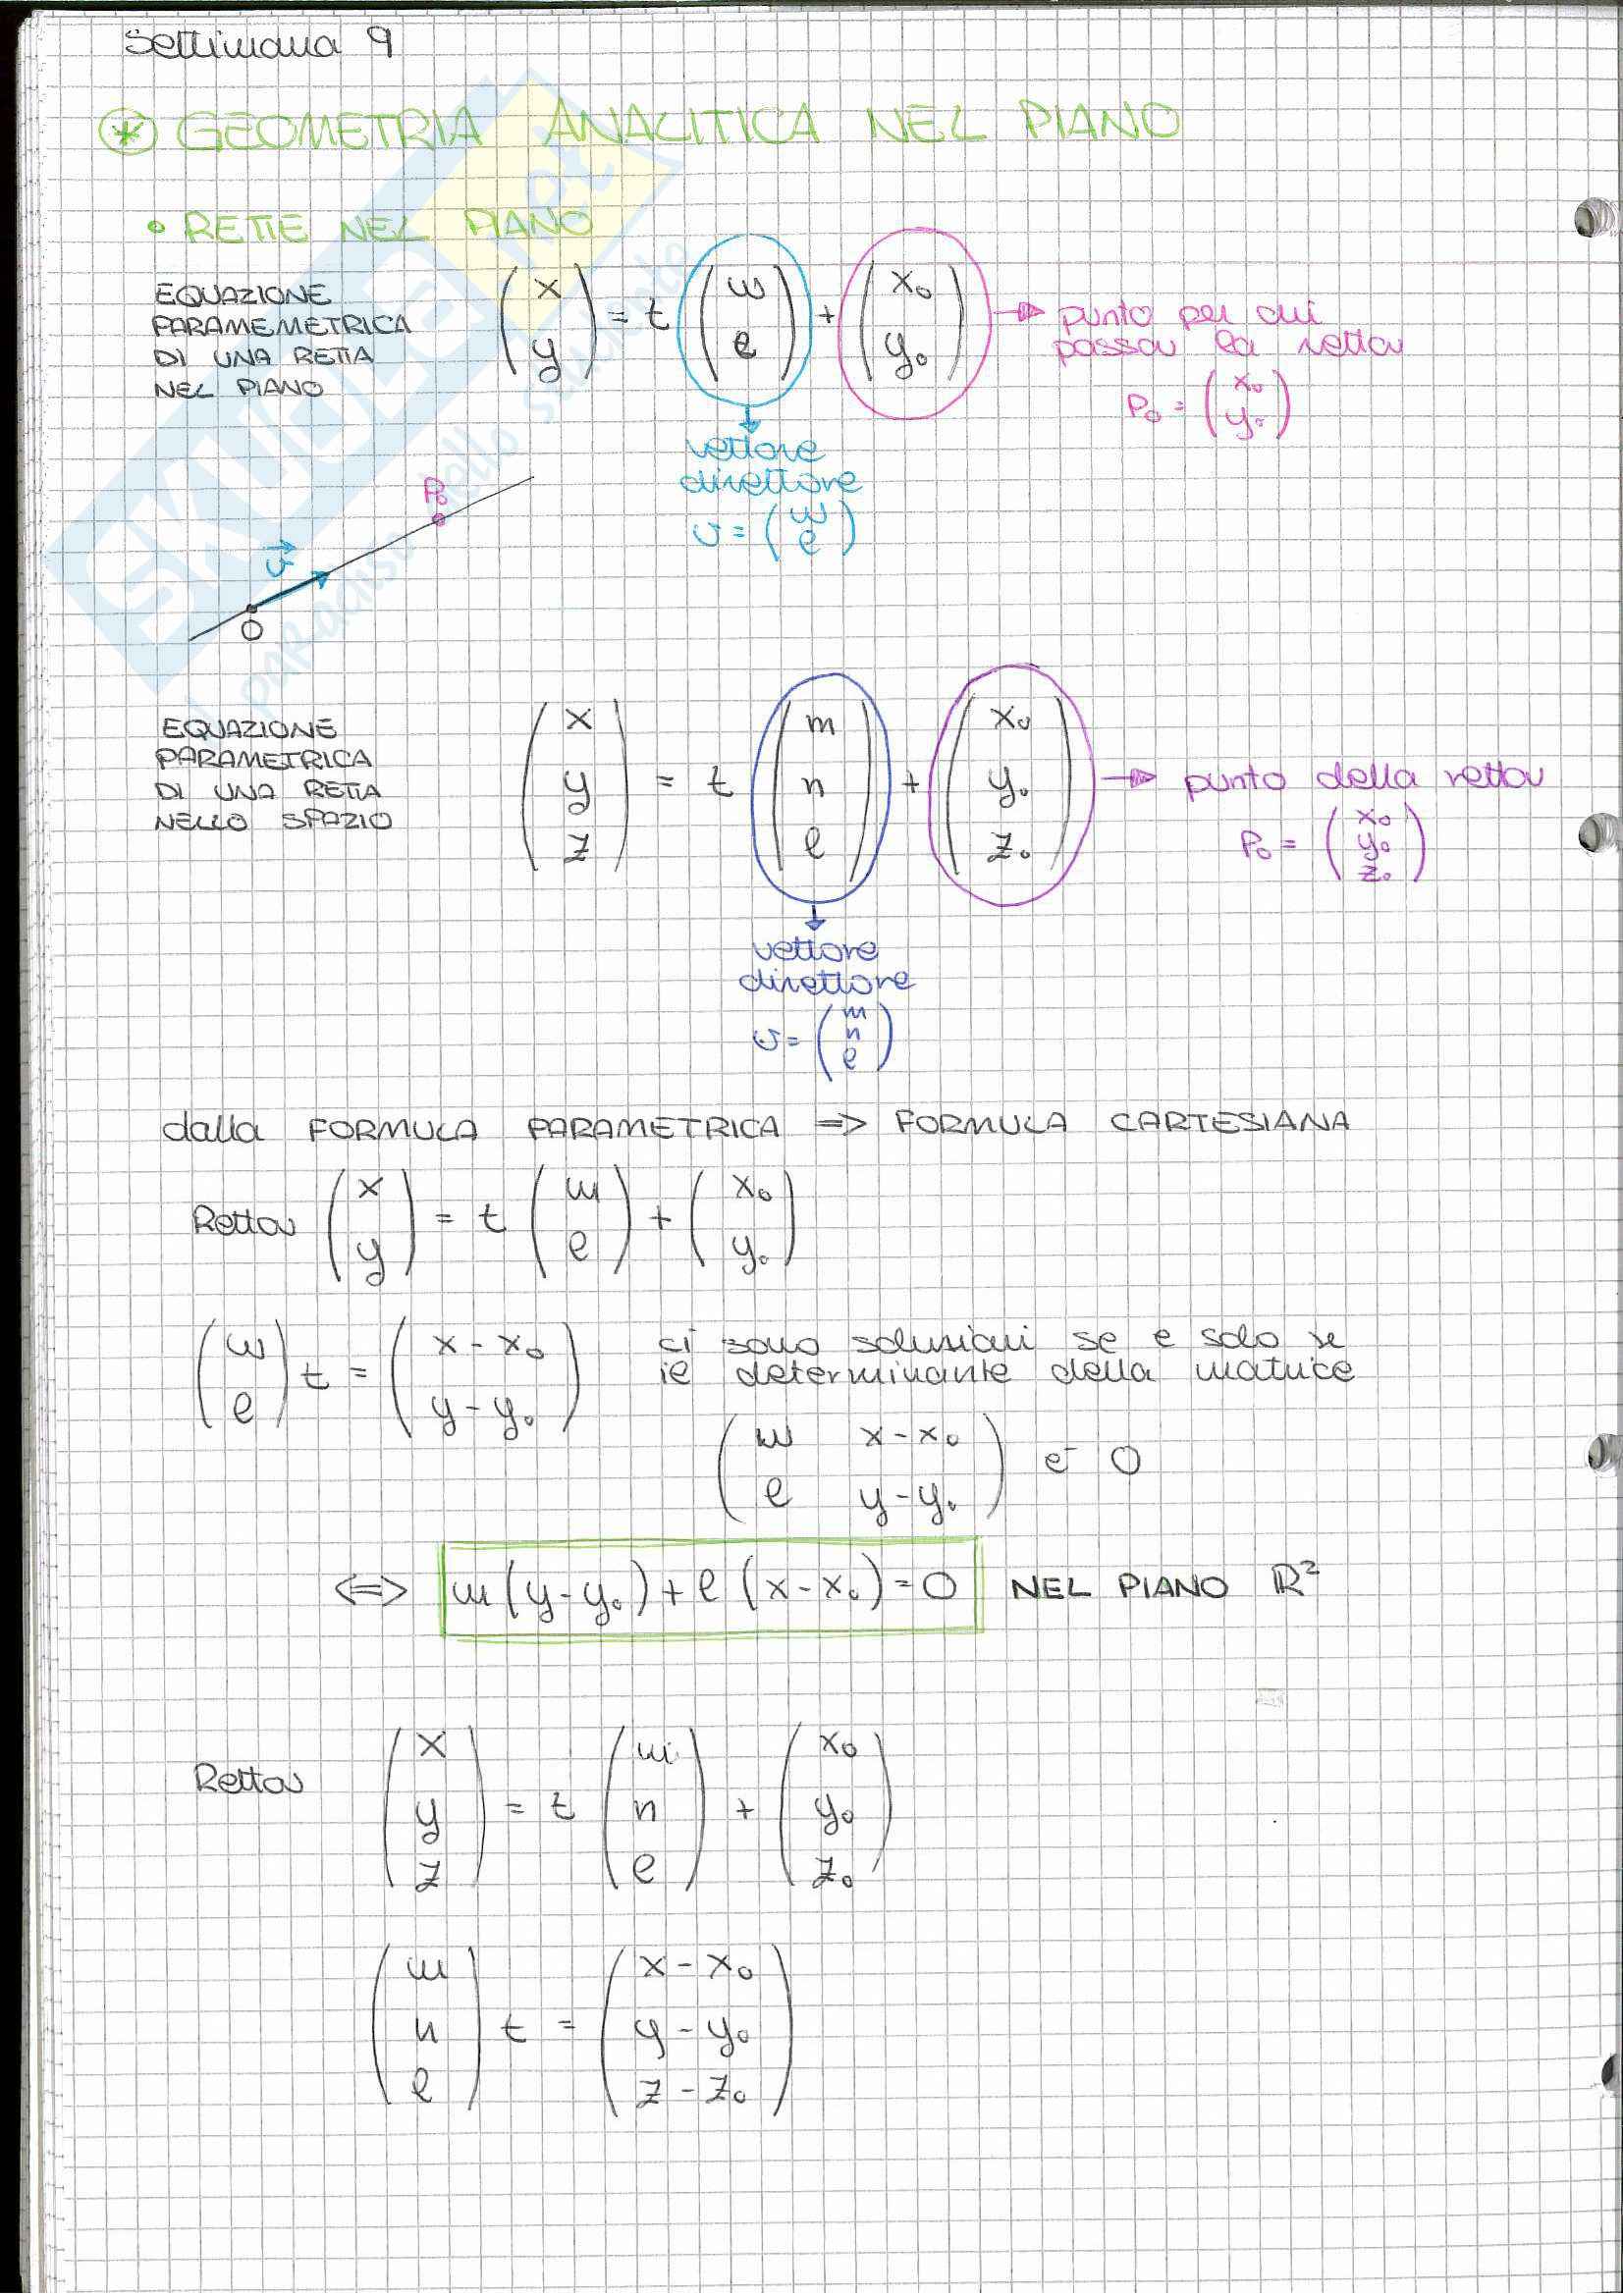 Settimana 9
* GEOMETRIA ANALITICA NEL PIANO
• RETTE NEL PIANO
EQUAZIONE
PARAMEMETRICA
DI UNA RETTA
NEL PIANO
(x y) = t (m l) + (x₀ y₀) → punto per cui
passa la retta
P₀ = (x₀ y₀)
vettore
direttore
v = (m l)
P₀
v
O
EQUAZIONE
PARAMETRICA
DI UNA RETTA
NELLO SPAZIO
(x y z) = t (m n l) + (x₀ y₀ z₀) → punto della retta
P₀ = (x₀ y₀ z₀)
vettore
direttore
v = (m n l)
dalla FORMULA PARAMETRICA => FORMULA CARTESIANA
Retta (x y) = t (m l) + (x₀ y₀)
(m l) t = (x-x₀ y-y₀) ci sono soluzioni se e solo se
il determinante della matrice
(m x-x₀ l y-y₀) è 0
<=> m(y-y₀)+l(x-x₀)=0 NEL PIANO ℝ²
Retta (x y z) = t (m n l) + (x₀ y₀ z₀)
(m n l) t = (x-x₀ y-y₀ z-z₀)